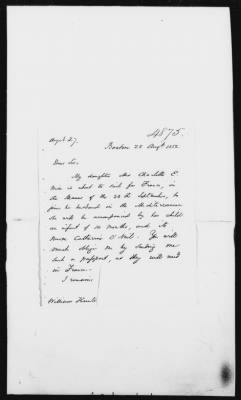 4875.
Augst 27
Boston 25 Augst 1852
Dear Sir,
My daughter Mrs Charlotte E.
is about to sail for France, in
the Steamer of the 20th September, to
join her husband in the Mediterranean
She will be accompanied by her child
an infant of six months, and its
nurse Catherine O'Neil. You will
much oblige me by sending me
such a passport, as they will need
in France.
I remain
William